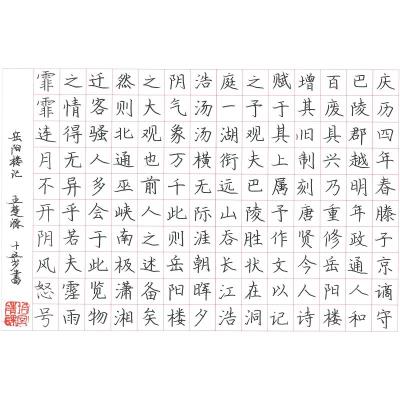 庆历四年春滕子京谪守
巴陵郡越明年政通人和
百废具兴乃重修岳阳楼
增其旧制刻唐贤今人诗
赋于其上属予作文以记
之予观夫巴陵胜状在洞
庭一湖衔远山吞长江浩
浩汤汤横无际涯朝晖夕
阴气象万千此则岳阳楼
之大观也前人之述备矣
然则北通巫峡南极潇湘
迁客骚人多会于此览物
之情得无异乎若夫霪雨
霏霏连月不开阴风怒号
岳阳楼记 王楚 十五岁書